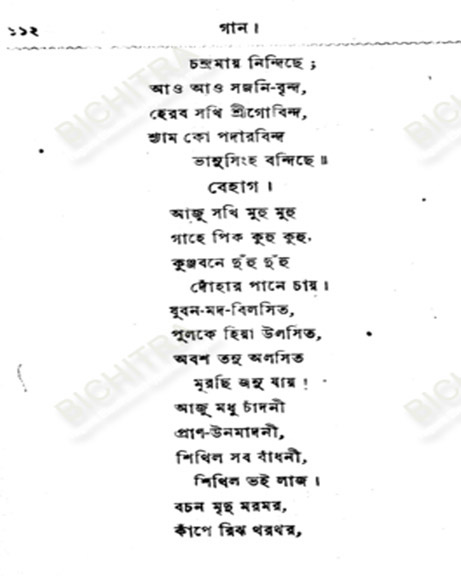 ১১২ গান।
চন্দ্রমায় নিন্দিছে;
আও আও সজনি-বৃন্দ,
হেরব সখি শ্রীগোবিন্দ,
শ্যাম কো পদারবিন্দ
ভানুসিংহ বন্দিছে॥
বেহাগ।
আজু সখি মুহু মুহু
গাহে পিক কুহু কুহু,
কুঞ্জবনে দুঁহু দুঁহু
দোঁহার পানে চায়।
যুবন-মদ-বিলসিত,
পুলকে হিয়া উলসিত,
অবশ তনু অলসিত
মূরছি জনু যায়!
আজু মধু চাঁদনী
প্রাণ-উনমাদনী,
শিথিল সব বাঁধনী,
শিথিল ভই লাজ।
বচন মৃদু মরমর,
কাঁপে রিঝ থরথর,
BICHITRA
BICHITRA
BICHITRA
BICHITRA